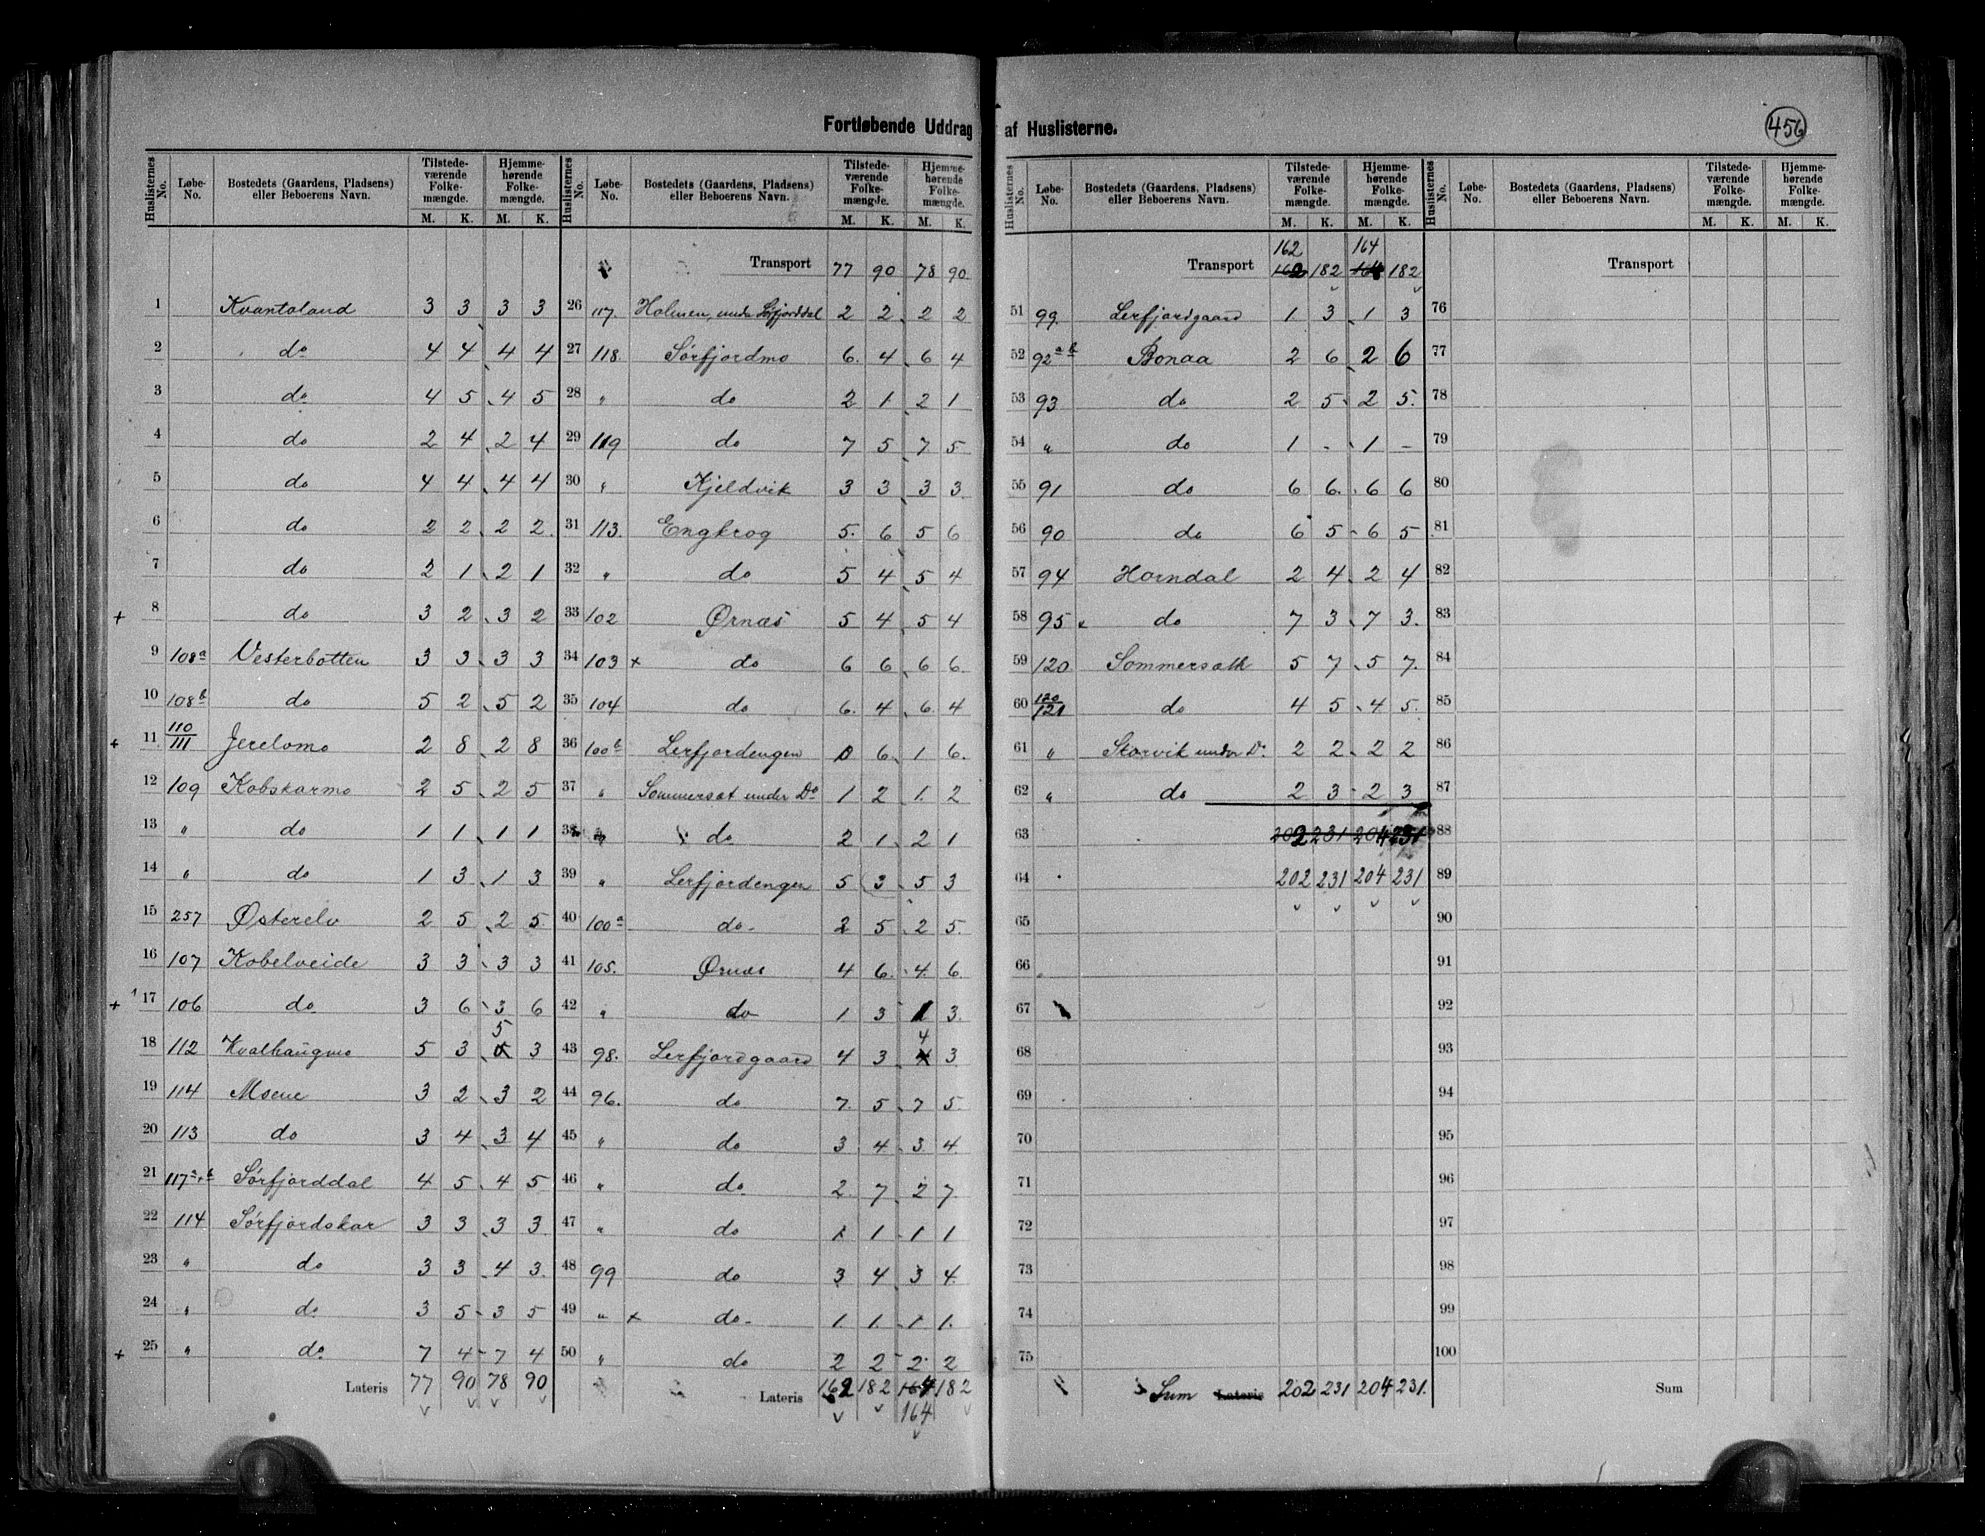 Fortløbende Uddrag af Huslisterne.
456
Huslisternes No. | Løbe-No. | Bostedets (Gaardens, Pladsens) eller Beboerens Navn. | Tilstedeværende Folkemængde. M. K. | Hjemmehørende Folkemængde. M. K.
1 Kvantoland 3 3 3 3
2 do 4 4 4 4
3 do 4 5 4 5
4 do 2 4 2 4
5 do 4 4 4 4
6 do 2 2 2 2
7 do 2 1 2 1
+ 8 do 3 2 3 2
9 108a Vesterbotten 3 3 3 3
10 108b do 5 2 5 2
+ 11 110/111 Jerelomo 2 8 2 8
12 109 Kobskarmo 2 5 2 5
13 " do 1 1 1 1
14 " do 1 3 1 3
15 257 Østerelv 2 5 2 5
16 107 Kobelveide 3 3 3 3
+ 17 106 do 3 6 3 6
18 112 Kvalhaugmo 5 3 5 3
19 114 Moene 3 2 3 2
20 113 do 3 4 3 4
21 117a+b Sørfjorddal 4 5 4 5
22 114 Sørfjordskar 3 3 3 3
23 " do 3 3 4 3
24 " do 3 5 3 5
+ 25 " do 7 4 7 4
Lateris 77 90 78 90
Huslisternes No. | Løbe-No. | Bostedets (Gaardens, Pladsens) eller Beboerens Navn. | Tilstedeværende Folkemængde. M. K. | Hjemmehørende Folkemængde. M. K.
Transport 77 90 78 90
26 117. Holmen, under Sørfjorddal 2 2 2 2
27 118. Sørfjordmo 6. 4 6 4
28 " do 2 1 2 1
29 119 do 7 5 7 5
30 " Kjeldvik 3 3 3 3
31 113. Engkrog 5. 6 5 6
32 " do 5 4 5 4
33 102 Ørnæs 5 4 5 4
34 103 x do 6 6 6 6.
35 104 do 6. 4 6. 4
36 100b Lerfjordengen 0 6 1 6.
37 " Sommersæt under Do 1 2 1. 2
38 " do 2 1 2 1
39 " Lerfjordengen 5 3 5 3
40 100a do 2 5 2 5.
41 105. Ørnæs 4 6. 4. 6.
42 " do 1 3 1 3.
43 98. Lerfjordgaard 4 3 4 3
44 96. do 7. 5 7 5.
45 " do 3 4 3 4.
46 " do 2 7 2 7.
47 " do 1 1 1 1
48 99 do 3 4 3 4.
49 " x do 1. 1. 1 1.
50 " do 2 2 2 2
Lateris 162 182 164 182
164
Huslisternes No. | Løbe-No. | Bostedets (Gaardens, Pladsens) eller Beboerens Navn. | Tilstedeværende Folkemængde. M. K. | Hjemmehørende Folkemængde. M. K.
162 164
Transport 162 182 164 182
51 99. Lerfjordgaard 1. 3 1 3
52 92a b Bonaa 2 6 2 6
53 93 do 2 5 2 5.
54 " do 1 - 1 -
55 91 do 6 6. 6 6
56 90 do 6 5 6 5.
57 94 Horndal 2 4 2 4
58 95 do 7 3 7 3.
59 120 Sommersæth 5 7 5 7.
60 120/121 do 4 5 4 5.
61 " Storvik under Do 2 2 2 2
62 " do 2 3 2 3
63 202 231 204 231
64 202 231 204 231
65
66
67
68
69
70
71
72
73
74
75
Sum Lateris 202 231 204 231.
Huslisternes No. | Løbe-No. | Bostedets (Gaardens, Pladsens) eller Beboerens Navn. | Tilstedeværende Folkemængde. M. K. | Hjemmehørende Folkemængde. M. K.
Transport
76
77
78
79
80
81
82
83
84
85
86
87
88
89
90
91
92
93
94
95
96
97
98
99
100
Sum